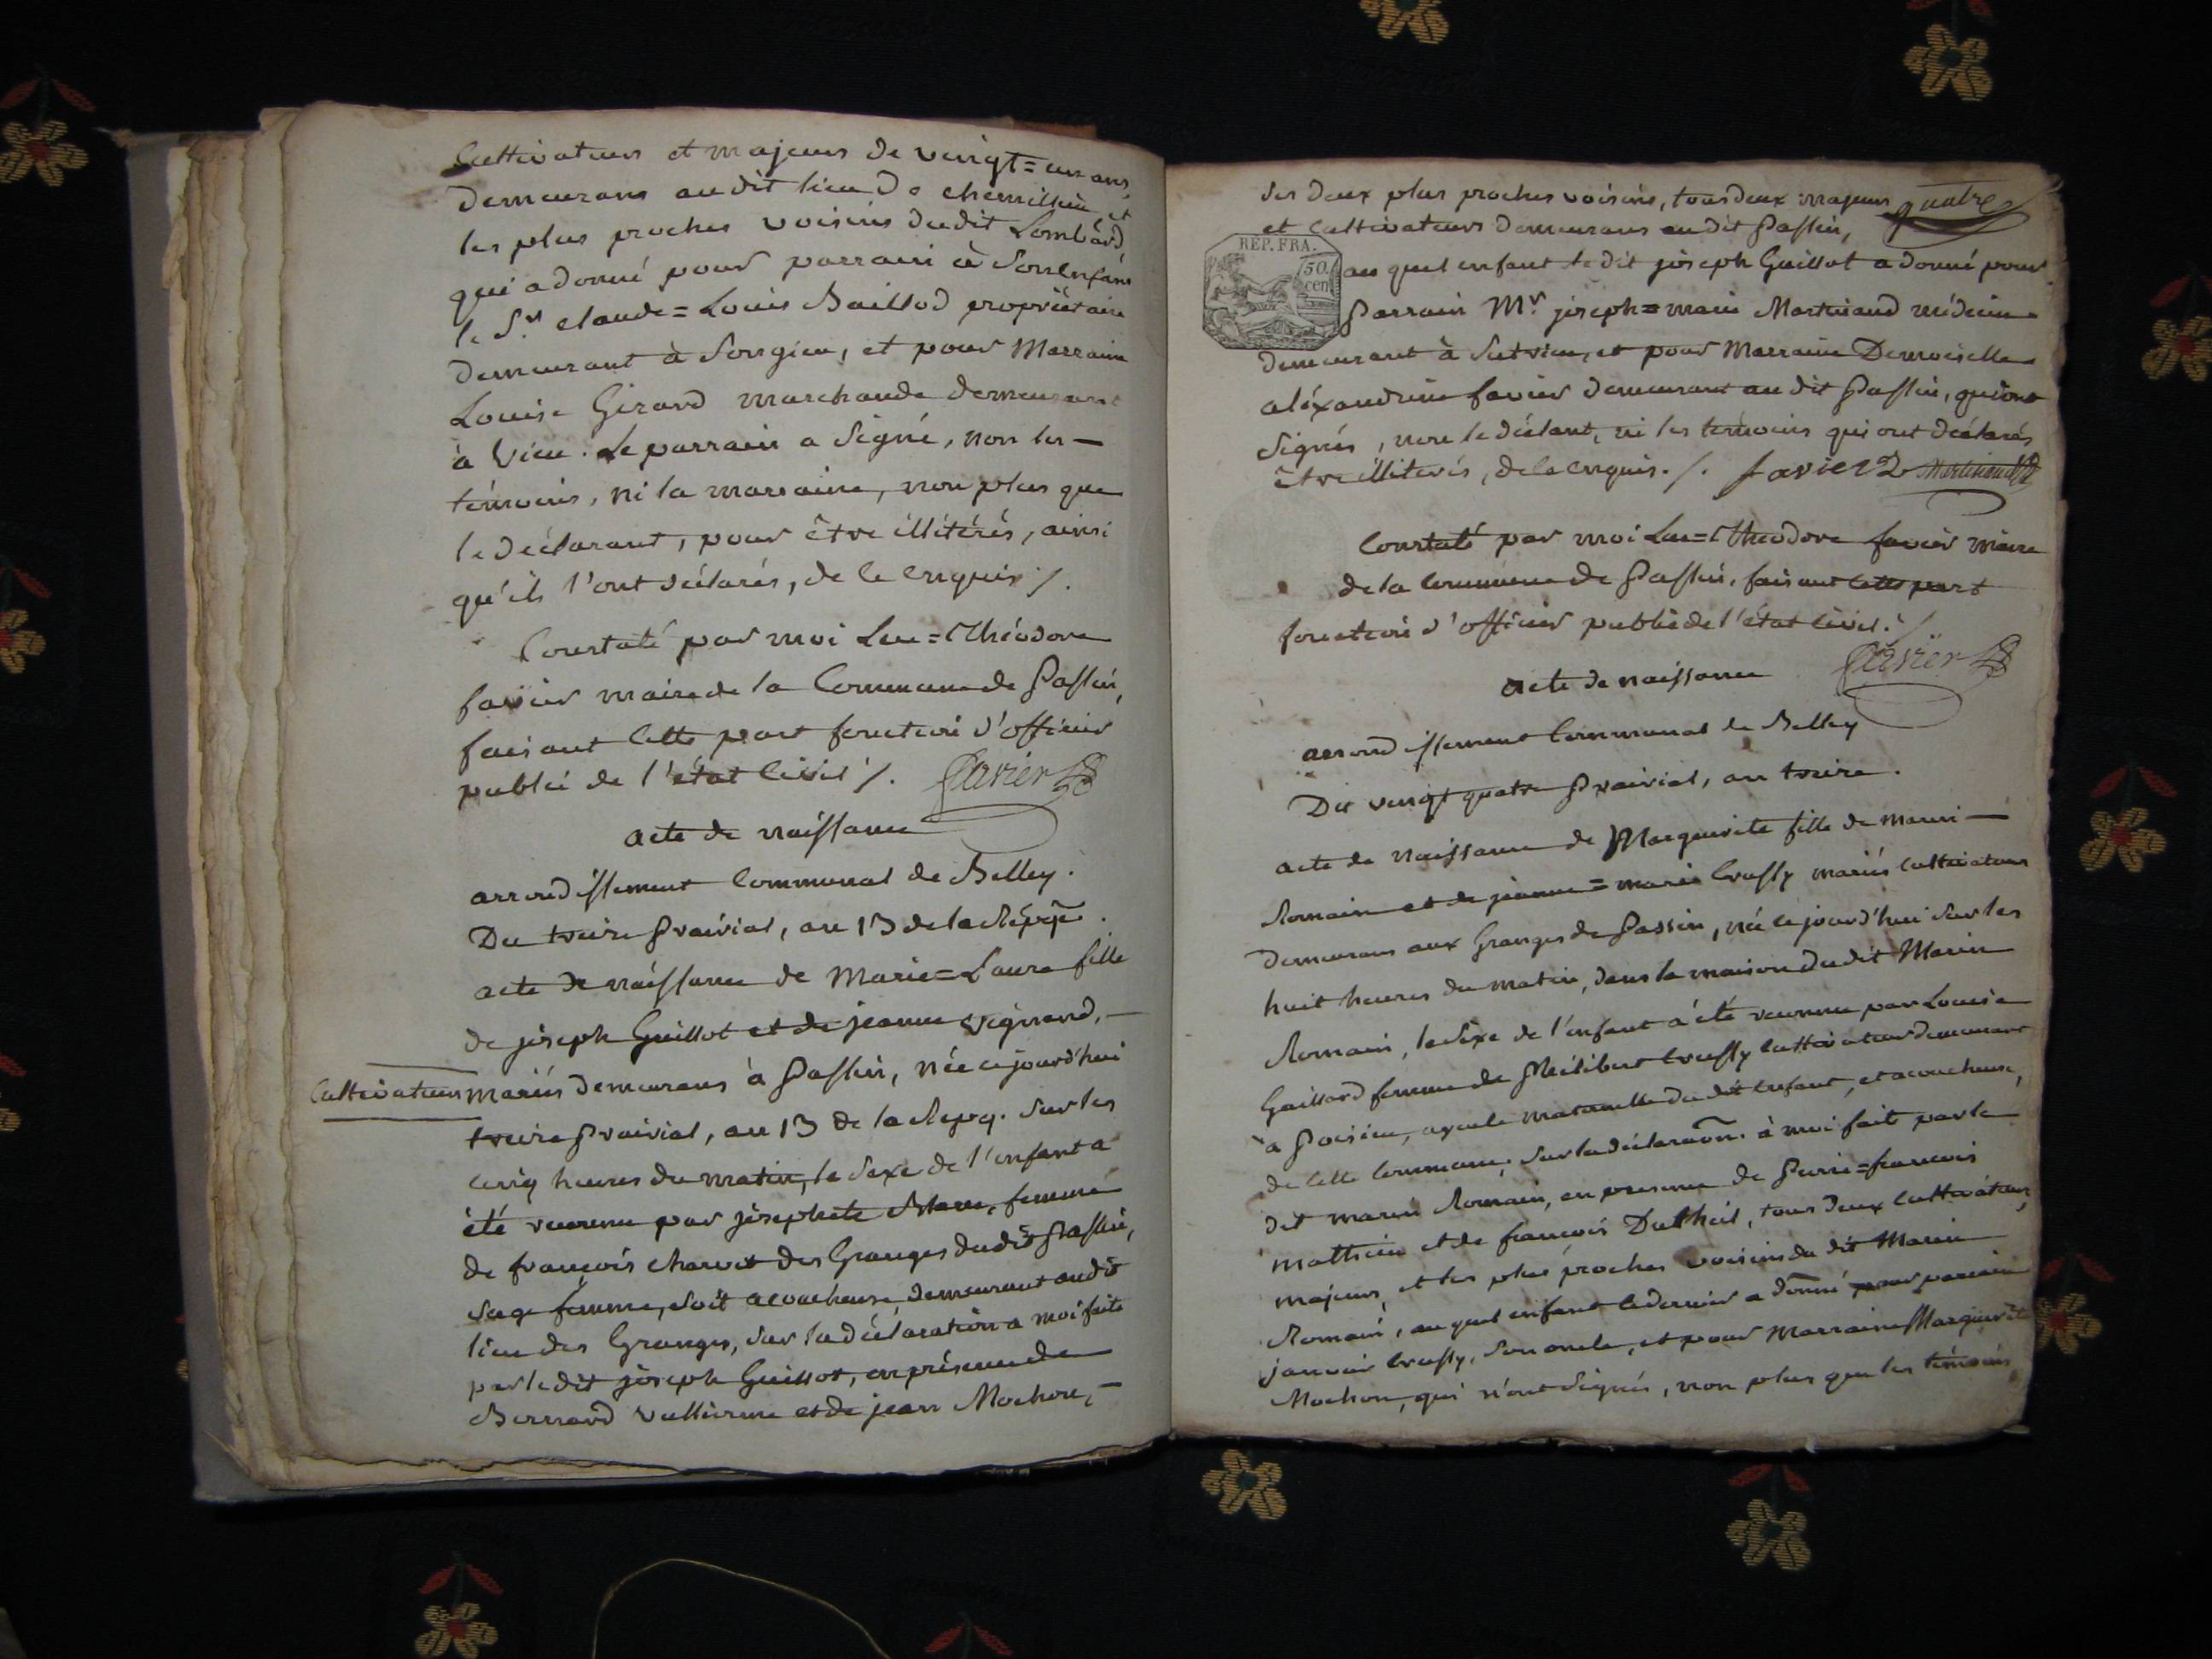 Cultivateurs et majeurs de vingt=un ans,
demeurans au dit lieu de chemillieu et
les plus proches voisins dudit Lombard
qui a donné pour parrain à son enfant
le Sr. claude=Louis Baillod propriétaire
demeurant à Songieu, et pour Marraine
Louise Girard marchande demeurant
à Vieu. Le parrain a signé, non les
témoins, ni la marraine, non plus que
le déclarant, pour être illitérés, ainsi
qu'ils l'ont déclarés, de ce enquis /.
Constaté par moi Luc=Théodore
favier maire de la Commune de Passin,
faisant cette part fonction d'officier
public de l'état civil /. Favier
acte de naissance
arrondissement Communal de Belley.
Du treize Prairial, an 13 de la Répq.
acte de naissance de Marie=Laure fille
de joseph Guillot et de jeanne Vignand,
Cultivateurs mariés demeurans à Passin, née cejourd'hui
treize Prairial, an 13 de la Repq. sur les
cinq heures du matin, le sexe de l'enfant a
été reconnu par josephete femme
de françois charvet des Granges dudit Passin,
sage femme, soit acoucheuse, demeurant audit
lieu des Granges, sur la déclaration a moi faite
par ledit joseph Guillot, en présence de
Bernard Vullierme et de jean Mochon,
ses deux plus proches voisins, tous deux majeurs quatre
et Cultivateurs demeurans au dit Passin,
REP. FRA.
50.
cen
au quel enfant le dit joseph Guillot a donné pour
Parrain Mr. joseph=marie Martinand médecin
demeurant à Sutrieu, et pour Marraine Demoiselle
aléxandrine favier demeurant au dit Passin, qui ont
signés, non le déclant, ni les témoins qui ont déclarés
être illiterés, de ce enquis. /. favier Martinand
Constaté par moi Luc=Théodore favier maire
de la Commune de Passin, faisant cette part
fonction d'officier public de l'état civil. /
Favier
acte de naissance
arrondissement Communal de Belley
Du vingt quatre Prairial, an treize.
acte de naissance de Marguerite fille de Marin
Romain et de jeanne=marie Crussy mariés cultivateurs
demeurans aux Granges de Passin, née cejourd'hui sur les
huit heures du matin, dans la maison dudit Marin
Romain, le sexe de l'enfant a été reconnu par Louise
Gaillard femme de Philibert Crussy cultivateur demeurant
à Poisieu, ayeule maternelle du dit enfant, et acoucheuse,
de cette Commune, sur la déclaraõn. à moi fait par le
dit marin Romain, en presence de Pierre=françois
mathieu et de françois Dutheil, tous deux cultivateurs,
majeurs, et les plus proches voisins du dit Marin
Romain, au quel enfant le dernier a donné pour parrain
janvier Crussy, son oncle, et pour Marraine Marguerite
Mochon, qui n'ont signés, non plus que les témoins